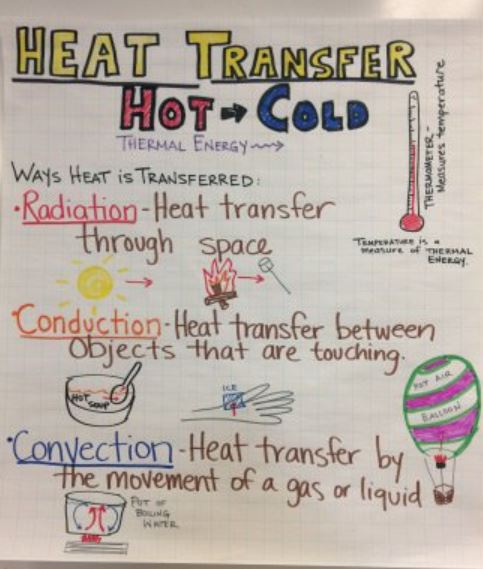 HEAT TRANSFER
HOT → COLD
THERMAL ENERGY
THERMOMETER -
Measures temperature
TEMPERATURE is a
measure of THERMAL
ENERGY.
WAYS HEAT IS TRANSFERRED:
·Radiation - Heat transfer
through space
·Conduction - Heat transfer between
Objects that are touching.
HOT SOUP
ICE
HOT AIR
BALLOON
·Convection - Heat transfer by
the movement of a gas or liquid
POT OF
BOILING
WATER